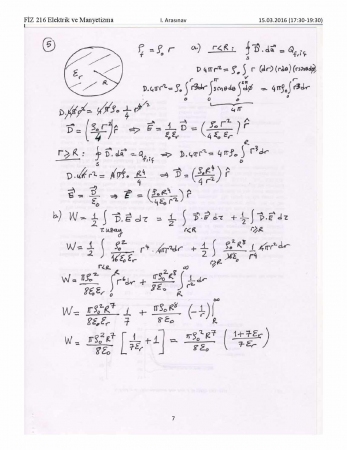 FİZ 216 Elektrik ve Manyetizma I. Arasınav 15.03.2016 (17:30-19:30)
⑤ ρ_f = ρ₀ r a) r≤R: ∮_S D⃗.da⃗ = Q_f,iç
ε_r R
D.4πr² = ρ₀ ∫ r (dr)(rdθ)(rsinθdφ)
D.4πr² = ρ₀ ∫₀^r r³dr ∫₀^π sinθdθ ∫₀^2π dφ = 4πρ₀ ∫₀^r r³dr
4π
D.4πr² = 4πρ₀ 1/4 r⁴
D⃗ = (ρ₀r²/4) r̂ ⇒ E⃗ = 1/(ε₀ε_r) D⃗ = (ρ₀r²/(4ε₀ε_r)) r̂
r≥R: ∮_S D⃗.da⃗ = Q_f,iç ⇒ D.4πr² = 4πρ₀ ∫₀^R r³dr
D.4πr² = 4πρ₀ R⁴/4 ⇒ D⃗ = (ρ₀R⁴/(4r²)) r̂
E⃗ = D⃗/ε₀ ⇒ E⃗ = (ρ₀R⁴/(4ε₀r²)) r̂
b) W = 1/2 ∫_τ:uzay D⃗.E⃗ dτ = 1/2 ∫_r≤R D⃗.E⃗ dτ + 1/2 ∫_r≥R D⃗.E⃗ dτ
W = 1/2 ∫_r≤R ρ₀²/(16ε₀ε_r) r⁴ 4πr²dr + 1/2 ∫_r≥R ρ₀²R⁸/(16ε₀) 1/r⁴ 4πr²dr
W = πρ₀²/(8ε₀ε_r) ∫₀^R r⁶dr + πρ₀²R⁸/(8ε₀) ∫_R^∞ 1/r² dr
W = πρ₀²R⁷/(8ε₀ε_r) 1/7 + πρ₀²R⁸/(8ε₀) (-1/r)|_R^∞
W = πρ₀²R⁷/(8ε₀) [1/(7ε_r) + 1] = πρ₀²R⁷/(8ε₀) ((1+7ε_r)/(7ε_r))
7